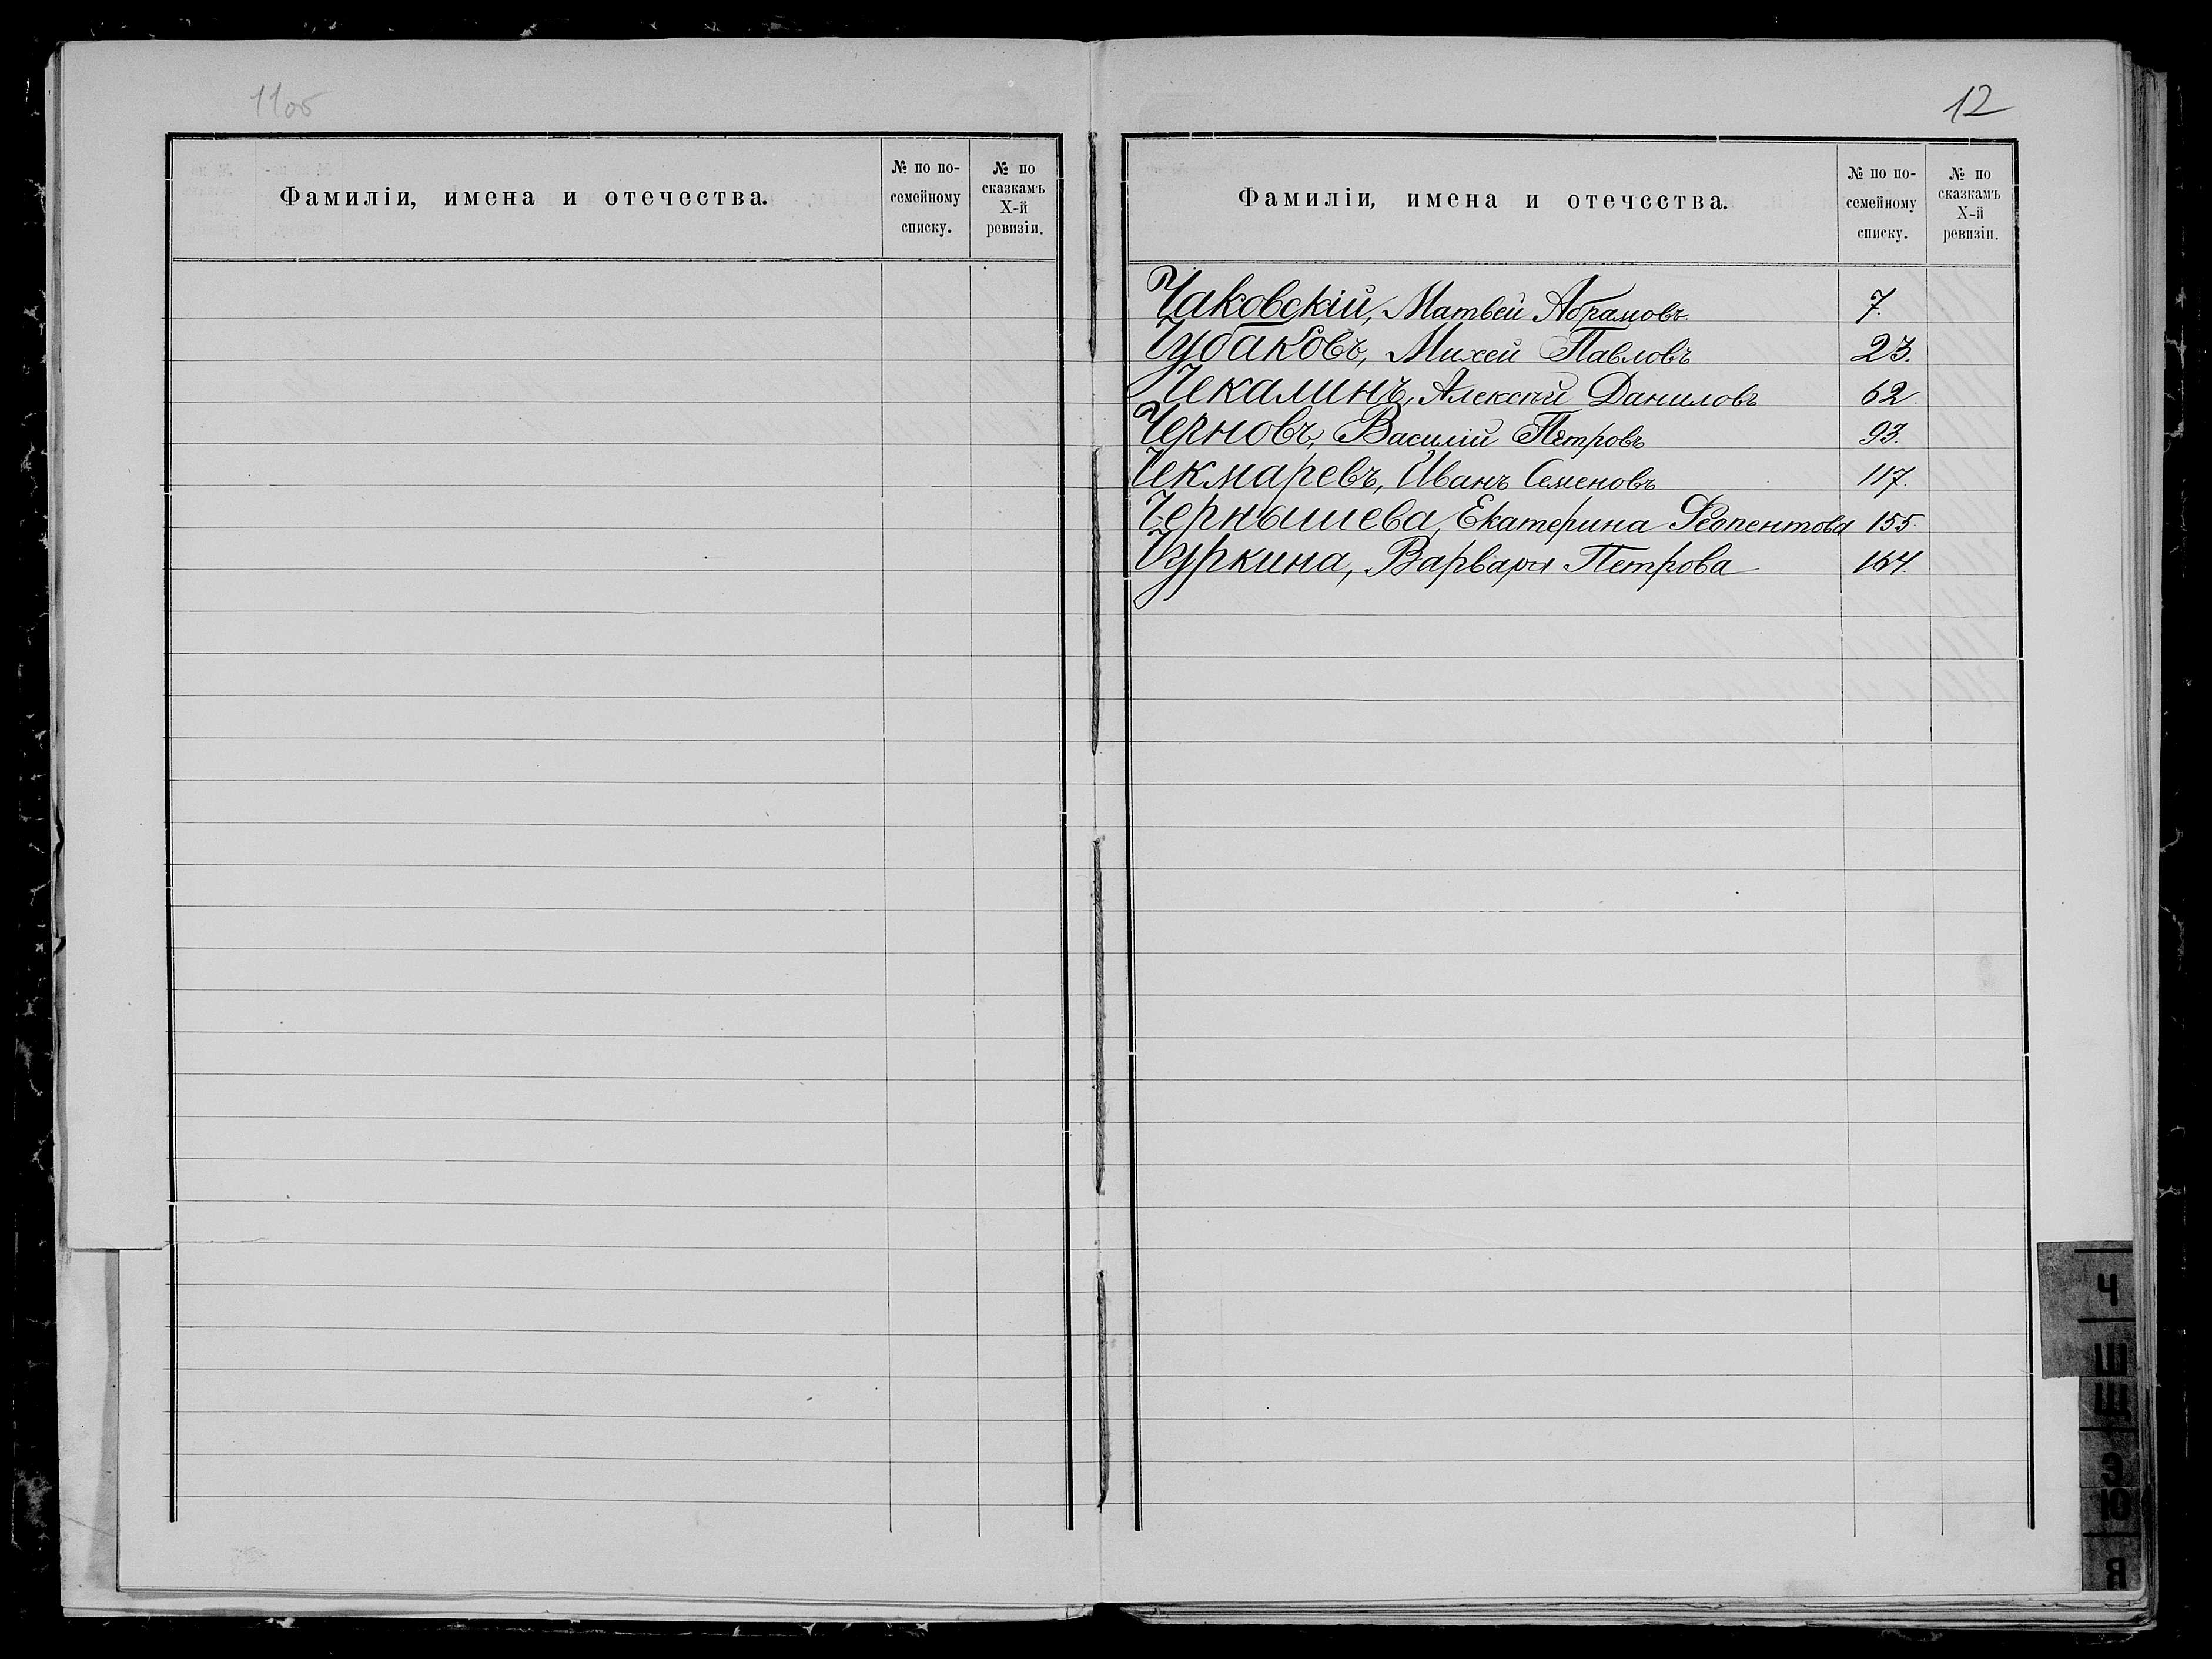 11об
Фамиліи, имена и отечества.
№ по по-
семейному
списку.
№ по
сказкамъ
X-й
ревизіи.
12
Фамиліи, имена и отечества.
№ по по-
семейному
списку.
№ по
сказкамъ
X-й
ревизіи.
Чаковскій, Матвей Абрамовъ. 7.
Чубаковъ, Михей Павловъ 23.
Чекалинъ, Алексѣй Даниловъ 62.
Черновъ, Василій Петровъ 93.
Чекмаревъ, Иванъ Семеновъ 117.
Чернышева, Екатерина 155.
Чуркина, Варвара Петрова 164.
Ч
Ш
Щ
Э
Ю
Я